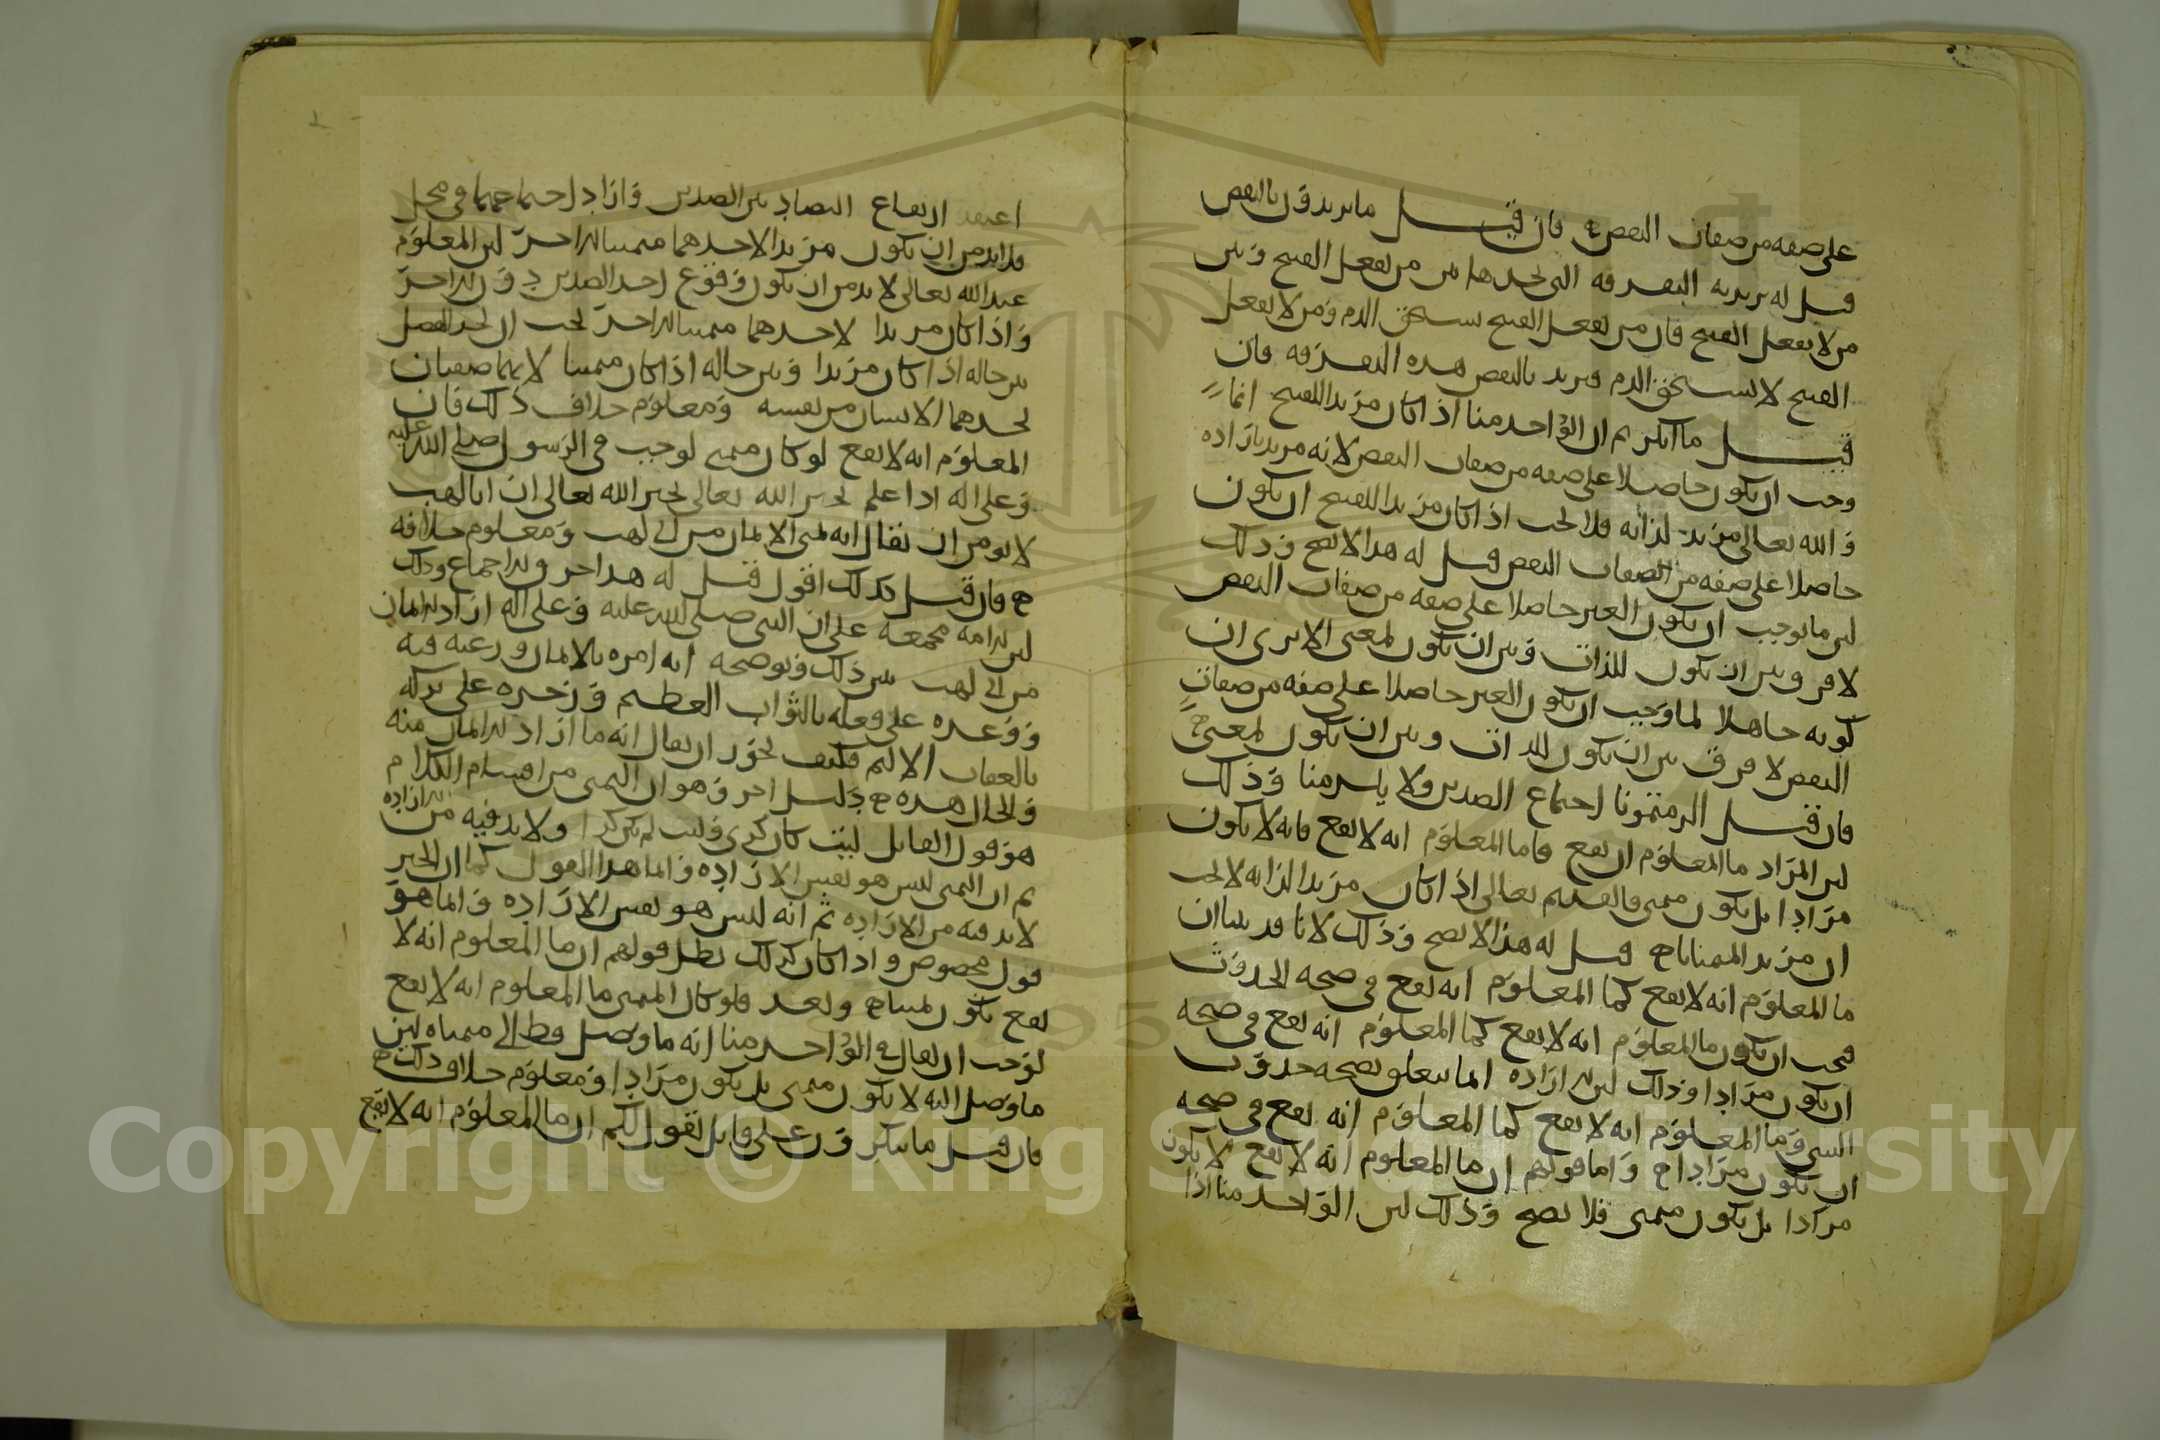 على صفه من صفات النقص فان قيل ما يريدون بالنقص
قيل له يريد به التفرقه التي نجدها بين من يفعل القبيح وبين
من لا يفعل القبيح فان من يفعل القبيح يستحق الذم ومن لا يفعل
القبيح لا يستحق الذم ويريد بالنقص هذه التفرقه فان
قيل ما انكرتم ان الواحد منا اذا كان مريدا للقبيح انما
وجب ان يكون حاصلا على صفه من صفات النقص لانه مريد باراده
والله تعالى مريد لذاته فلا يجب اذا كان مريدا للقبيح ان يكون
حاصلا على صفه من الصفات النقص قيل له هذا لا يصح وذلك
لان ما يوجب ان يكون الغير حاصلا على صفه من صفات النقص
لا فرق بين ان يكون للذات وبين ان يكون لمعنى الا ترى ان
كونه جاهلا لما وجب ان يكون الغير حاصلا على صفه من صفات
النقص لا فرق بين ان يكون للذات وبين ان يكون لمعنى
فان قيل الزمتمونا اجتماع الضدين ولا يلزمنا وذلك
لان المراد ما المعلوم ان يقع فاما المعلوم انه لا يقع فانه لا يكون
مرادا بل يكون متمنى فالقديم تعالى اذا كان مريدا لذاته لا يجب
ان يريد المتمناه قيل له هذا لا يصح وذلك لانا قد بينا ان
ما المعلوم انه لا يقع كما المعلوم انه يقع في صحه الحدوث
فيجب ان يكون ما المعلوم انه لا يقع كما المعلوم انه يقع في صحه
ان يكون مرادا وذلك لان الاراده انما تتعلق بصحه حدوث
الشي وما المعلوم انه لا يقع كما المعلوم انه يقع في صحه
ان يكون مرادا واما قولهم ان ما المعلوم انه لا يقع لا يكون
مرادا بل يكون متمنى فلا يصح وذلك لان الواحد منا اذا
اعتقد ارتفاع التضاد بين الضدين واراد اجتماعهما في محل
فلا بد من ان يكون مريدا لاحدهما متمنيا للاخر لان المعلوم
عند الله تعالى لا بد من ان يكون وقوع احد الضدين دون الاخر
واذا كان مريدا لاحدهما متمنيا للاخر يجب ان يجد الفصل
بين حاله اذا كان مريدا وبين حاله اذا كان متمنيا لانهما صفتان
يجدهما الانسان من نفسه ومعلوم خلاف ذلك فان
المعلوم انه لا يقع لو كان متمنى لوجب في الرسول صلى الله عليه
وعلى اله اذا علم بخبر الله تعالى ان ابا لهب
لا يومن ان يقال انه تمنى الايمان من ابي لهب ومعلوم خلافه
فان قيل بذلك اقول قيل له هذا خرق الاجماع وذلك
لان الامه مجمعه على ان النبي صلى الله عليه وعلى اله اراد الايمان
من ابي لهب يبين ذلك ويوضحه انه امره بالايمان ورغبه فيه
ووعده على فعله بالثواب العظيم وزجره على تركه
بالعقاب الاليم فكيف يجوز ان يقال انه ما اراد الايمان منه
والحال هذه دليل اخر وهو ان التمنى من اقسام الكلام
هو قول القايل ليت كان كذى وليت لم يكن كذا ولا بد فيه من الاراده
ثم ان التمنى ليس هو نفس الاراده وانما هذا القول كما ان الخبر
لا بد فيه من الاراده ثم انه ليس هو نفس الاراده وانما هو
قول مخصوص واذا كان كذلك بطل قولهم ان ما المعلوم انه لا
يقع يكون متمناه وبعد فلو كان المتمنى ما المعلوم انه لا يقع
لوجب ان يقال في الواحد منا انه ما وصل قط الى متمناه لان
ما وصل اليه لا يكون متمنى بل يكون مرادا ومعلوم خلاف ذلك
فان قيل ما ينكرون على قايل يقول لكم ان ما المعلوم انه لا يقع